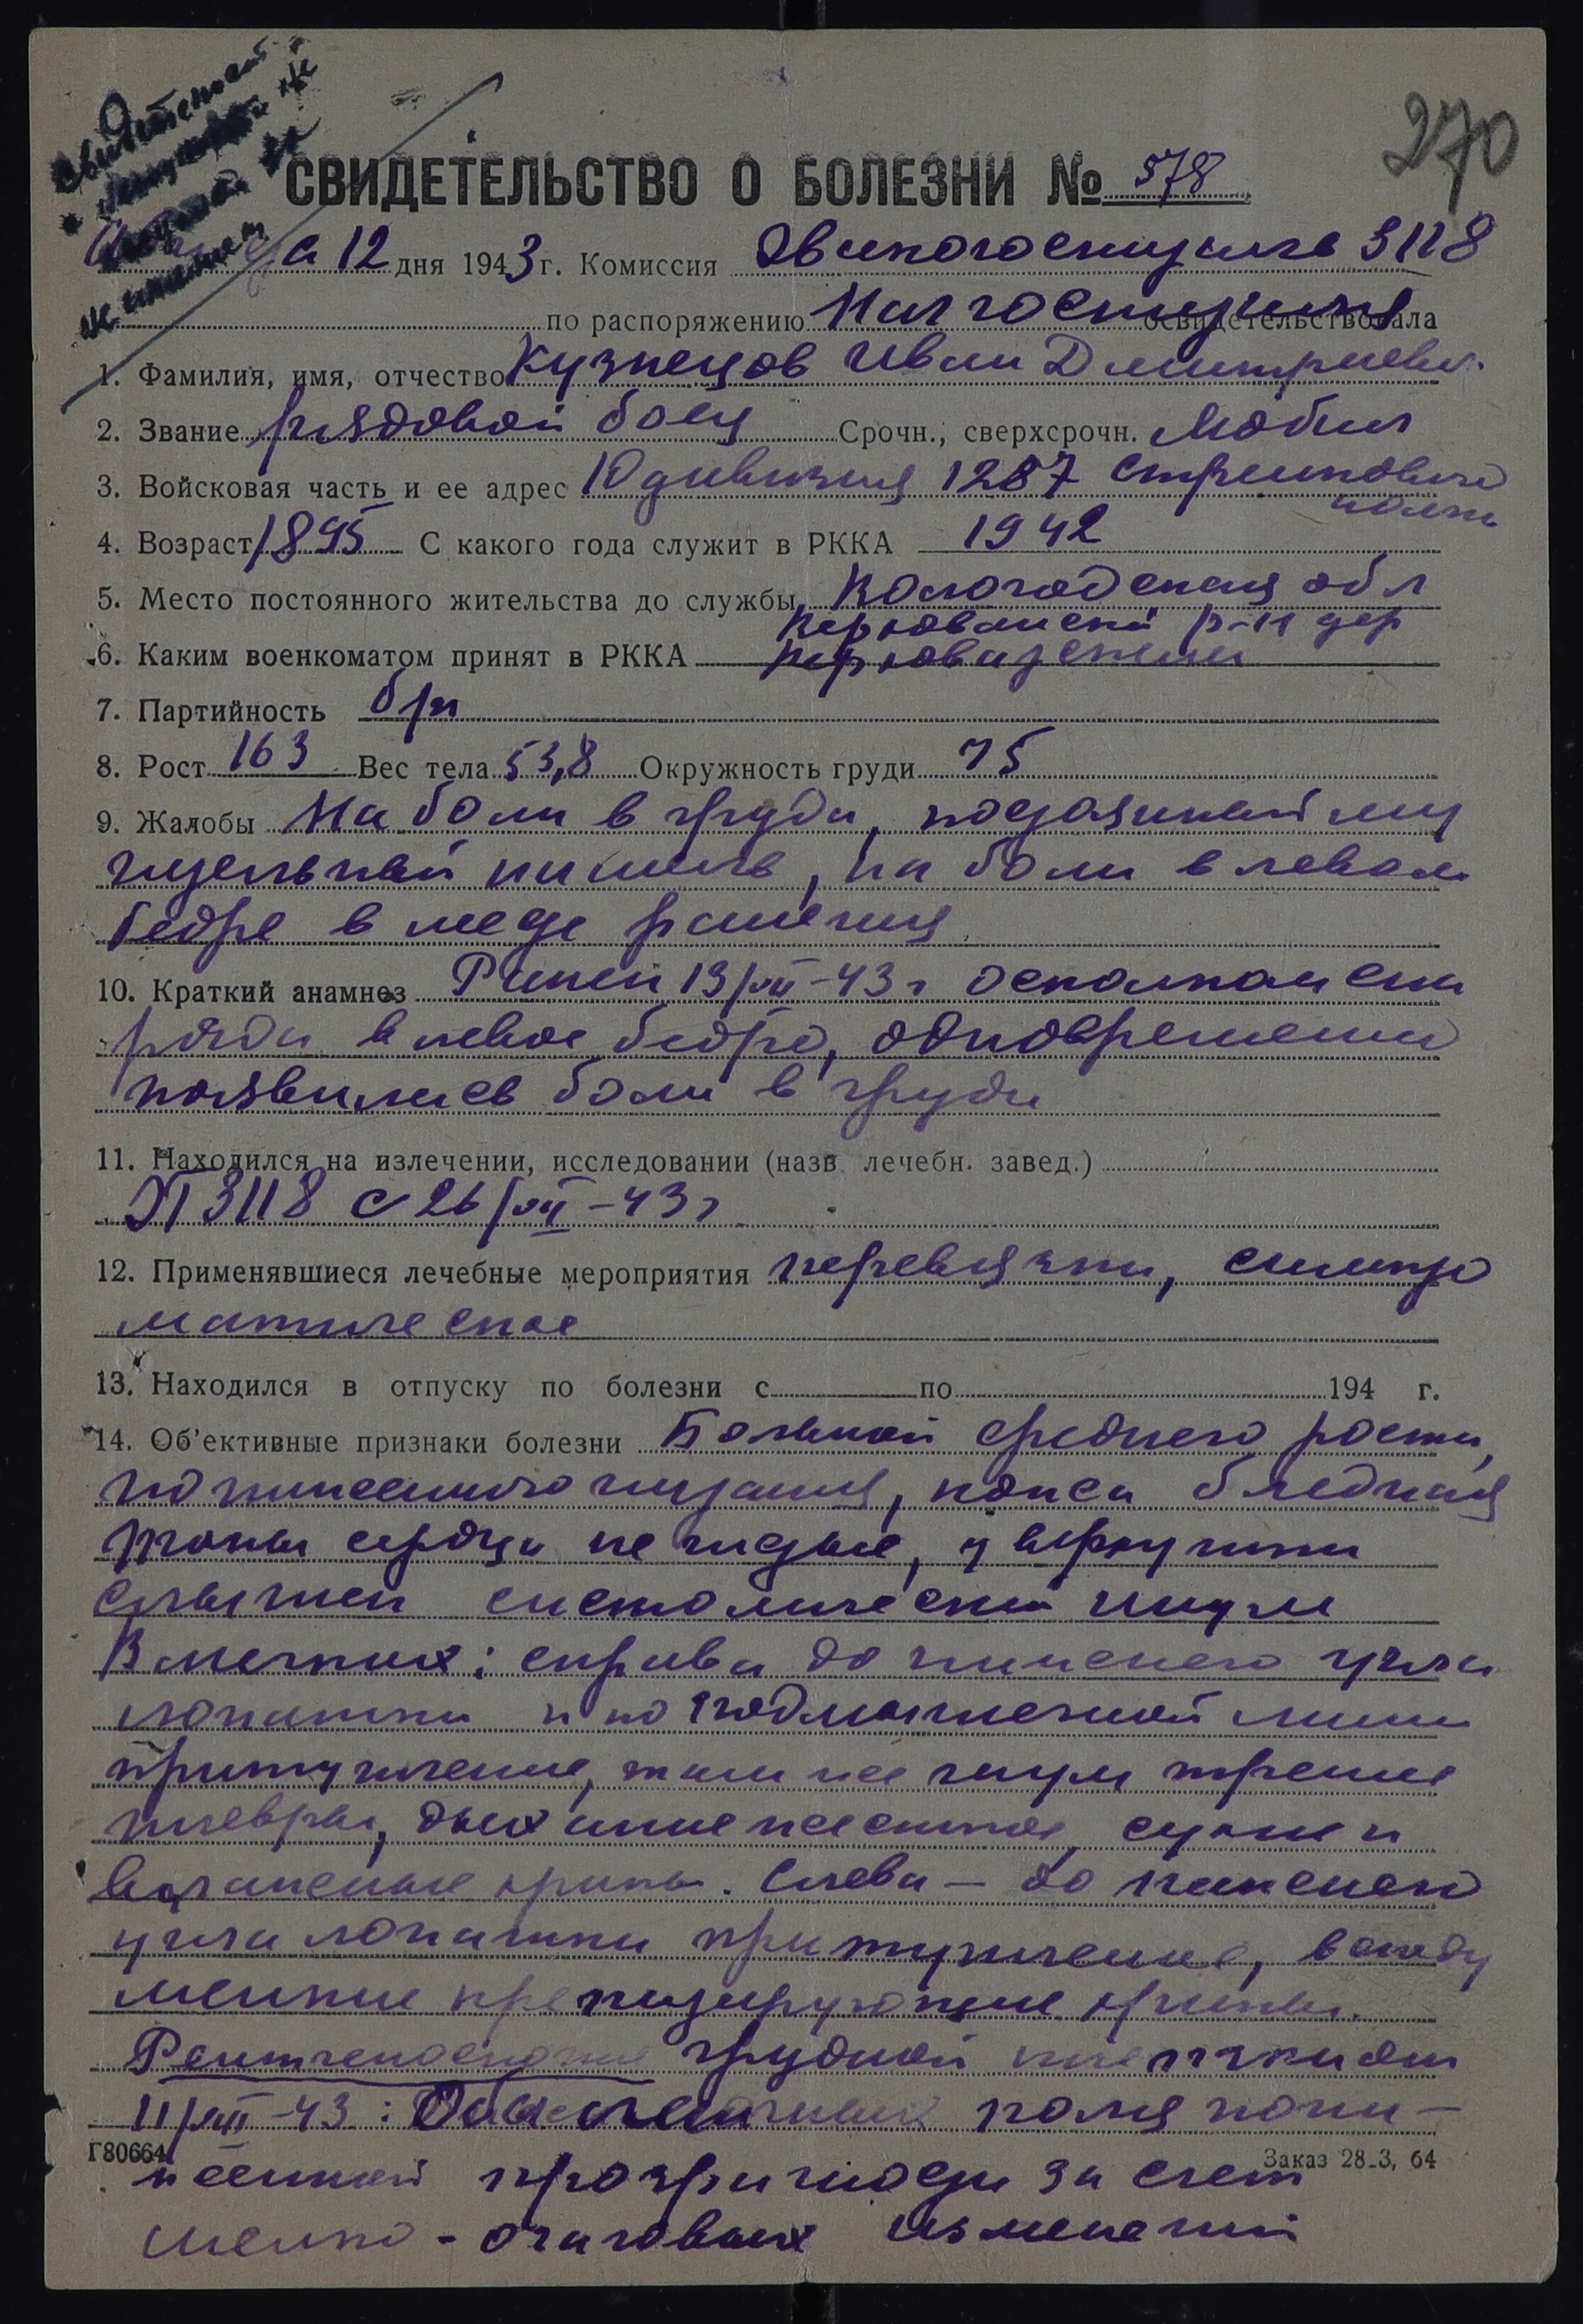 270
СВИДЕТЕЛЬСТВО О БОЛЕЗНИ № 578
12 дня 1943 г. Комиссия Эвакогоспиталь 3118
по распоряжению Нач госпиталя освидетельствовала
1. Фамилия, имя, отчество Кузнецов Иван Дмитриевич
2. Звание рядовой боец Срочн., сверхсрочн. Мобил
3. Войсковая часть и ее адрес 10 дивизия 1287 стрелковый
полк
4. Возраст 1895 С какого года служит в РККА 1942
5. Место постоянного жительства до службы Вологодская обл
р-н дер
6. Каким военкоматом принят в РККА
7. Партийность б/п
8. Рост 163 Вес тела 53,8 Окружность груди 75
9. Жалобы На боли в груди,
кашель, на боли в левом
бедре в месте ранения
10. Краткий анамнез Ранен 13/VII-43 г осколком сна
ряда в левое бедро, одновременно
появились боли в груди
11. Находился на излечении, исследовании (назв. лечебн. завед.)
ЭГ 3118 с 26/VII-43 г
12. Применявшиеся лечебные мероприятия перевязки, симпто
матическое
13. Находился в отпуску по болезни с по 194 г.
14. Об'ективные признаки болезни Больной среднего роста,
пониженного питания, кожа бледная
тоны сердца не чистые, у верхушки
слышен систолический шум
В легких: справа до нижнего угла
лопатки и по подмышечной линии
притупление, там же шум трения
плевры, дыхание жесткое, сухие и
влажные хрипы. Слева — до нижнего
угла лопатки притупление, всюду
мелкие крепитирующие хрипы.
Рентгеноскопия грудной клетки от
11/VIII-43: Оба легочных поля пони-
Г80664
Заказ 28-3, 64
женной прозрачности за счет
мелко-очаговых изменений